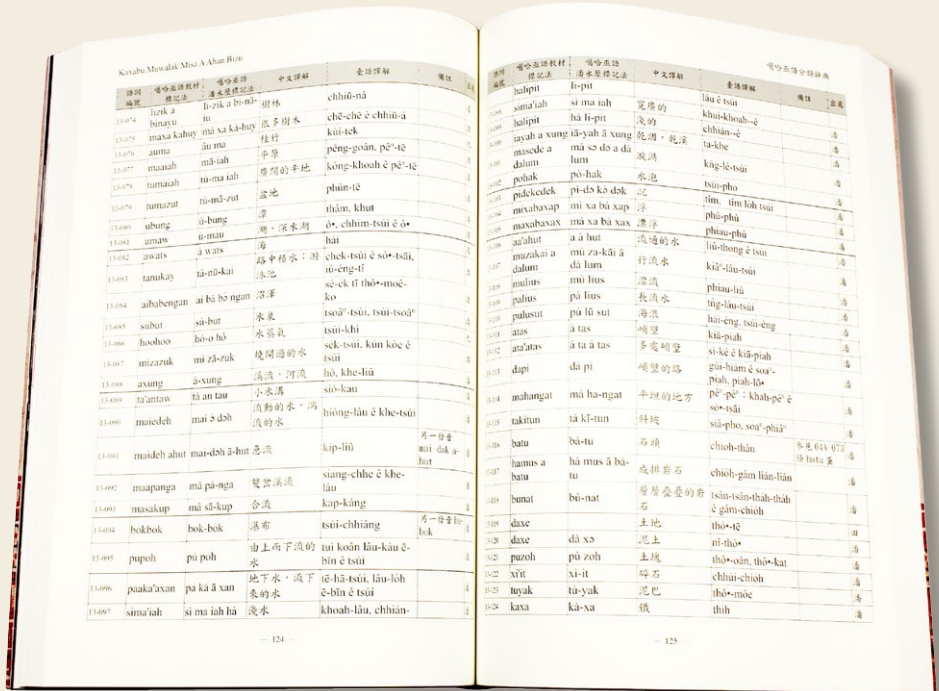 Kaxabu Muwalak Misa A Ahan Bizu
語詞編號 噶哈巫語教材標記法 噶哈巫語潘永歷標記法 中文譯解 臺語譯解 備註 出處
13-074 lizik a binayu 樹林 chhiū-nâ
13-075 maxa kahuy má xa ká-huy 很多樹木 chē-chē ê chhiū-á
13-076 auma áu ma 桂竹 kùi-tek
13-077 maaiah mā-iah 平原 pêng-goân, pêⁿ-tē
13-078 tumaiah tù-ma iah 廣闊的平地 kóng-khoah ê pêⁿ-tē
13-079 tumazut tù-mā-zut 盆地 phûn-tē
13-080 ubung ù-bung 潭 thâm, khut
13-081 umaw ù-mau 湖，深水湖 ô•, chhim-tsúi ê ô•
13-082 awats à wats 海 hái
13-083 tanukay tà-nū-kai 路中積水；游泳池 chek-tsúi ê só•-tsāi, iû-éng-tî
13-084 aibabengan ai bà bə ngan 沼澤 sé-ek tī thô•-moê-ko
13-085 subut sù-but 水泉 tsoâⁿ-tsúi, tsúi-tsoâⁿ
13-086 hoohoo hò-o hō 水蒸氣 tsúi-khì
13-087 mizazuk mi zā-zuk 燒開過的水 sek-tsúi, kún kòe ê tsúi
13-088 axung à-xung 溪流，河流 hô, khe-liû
13-089 ta'antaw tà an tau 小水溝 sió-kau
13-090 maiedeh mai ə dəh 流動的水，湍流的水 hióng-lâu ê khe-tsúi
13-091 maideh ahut mai-dəh ā-hut 急流 kip-liû
13-092 maapanga mā pà-nga 雙岔溪流 siang-chhe ê khe-lâu
13-093 masakup má sā-kup 合流 kap-kâng
13-094 bokbok bok-bok 瀑布 tsúi-chhiâng
13-095 pupoh pù poh 由上而下流的水 tuì koân lâu-kàu ē-bīn ê tsúi
13-096 paaka'axan pa kà ā xan 地下水，流下來的水 tē-hā-tsúi, lâu-lòh ē-bīn ê tsúi
13-097 sima'iah si ma iah há 淺水 khoah-lâu, chhián-
— 124 —
噶哈巫語分類辭典
語詞編號 噶哈巫語教材標記法 噶哈巫語潘永歷標記法 中文譯解 臺語譯解 備註 出處
halipit li-pit lâu ê tsúi
sima'iah si ma iah 寬擴的 khui-khoah--ê
halipit hà li-pit 淺的 chhián--ê
xayah a xung iā-yah ā xung 乾涸，乾溪 ta-khe
masede a dalum má sə də a dà lum 漩渦 kńg-lê-tsúi
pohak pò-hak 水泡 tsúi-pho
pidekedek pi-də kə dək 沉 tîm, tîm loh tsúi
mixabaxap mi xa bà xap 浮 phû-phû
maxabaxax má xa bà xax 漂浮 phiau-phû
aa'ahut a à hut 流過的水 liû-thong ê tsúi
muzakai a dalum mù za-kāi ā dà lum 行流水 kiâⁿ-lâu-tsúi
mulius mù lius 漂流 phiau-liû
palius pà lius 長流水 tn̂g-lâu-tsúi
pulusut pù lū sut 海浪 hái-éng, tsúi-éng
atas à tas 峭壁 kiā-piah
ata'atas à ta à tas 多處峭壁 sì-kè ê kiā-piah
13-113 dapi dà pi 峭壁的路 gûi-hiám ê soaⁿ-piah, piah-lō•
13-114 mahangat má ha-ngat 平坦的地方 pêⁿ-pêⁿ；khah-pêⁿ ê só•-tsāi
13-115 takitun tà kī-tun 斜坡 siâ-pho, soaⁿ-phiâⁿ
13-116 batu bà-tu 石頭 chioh-thâu
13-117 hamus a batu hà mus ā bà-tu 成排岩石 chioh-gâm liân-liân
13-118 bunat bù-nat 層層疊疊的岩石 tsân-tsân-thah-thah ê gâm-chioh
13-119 daxe 土地 thó•-tē
13-120 daxe dà xə 泥土 nî-thô•
13-121 puzoh pù zoh 土塊 thô•-oân, thô•-kat
13-122 xi'it xi-it 碎石 chhùi-chioh
13-123 tuyak tù-yak 泥巴 thô•-môe
13-124 kaxa kà-xa 鐵 thih
— 125 —